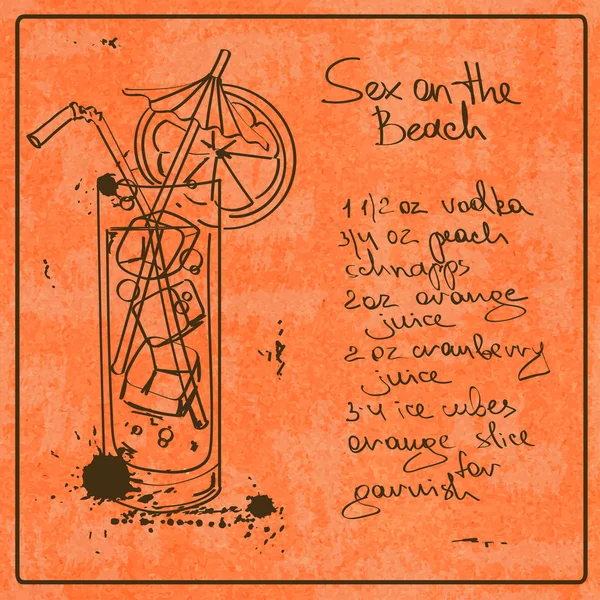 Sex on the
Beach
1 1/2 oz vodka
3/4 oz peach
schnapps
2 oz orange
juice
2 oz cranberry
juice
3-4 ice cubes
orange slice
for
garnish